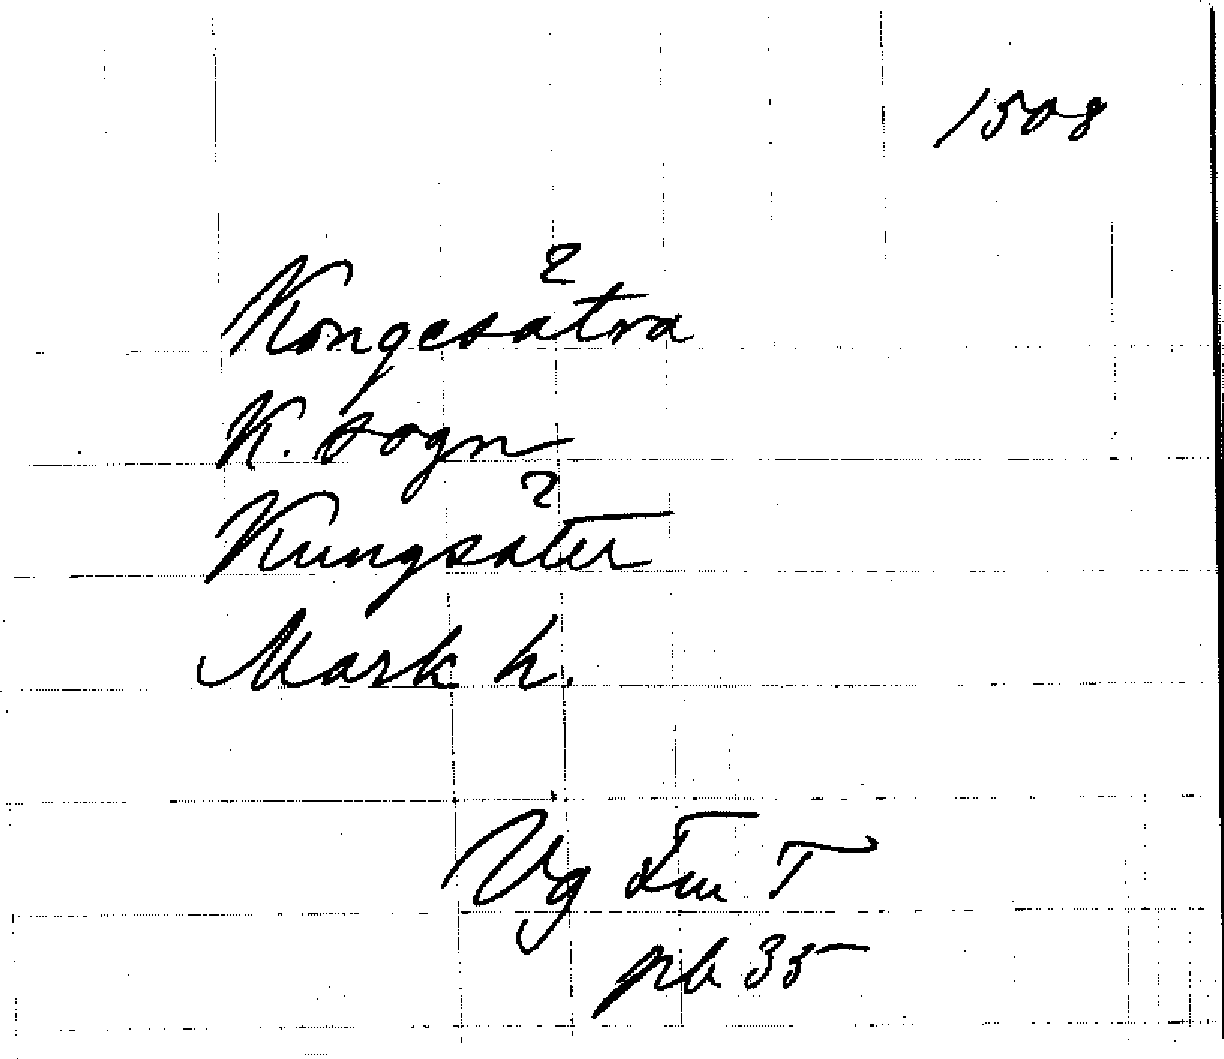 1508
Kongesätra
K. sogn
Kungsäter
Mark h.
Vg Fm T
pb 35